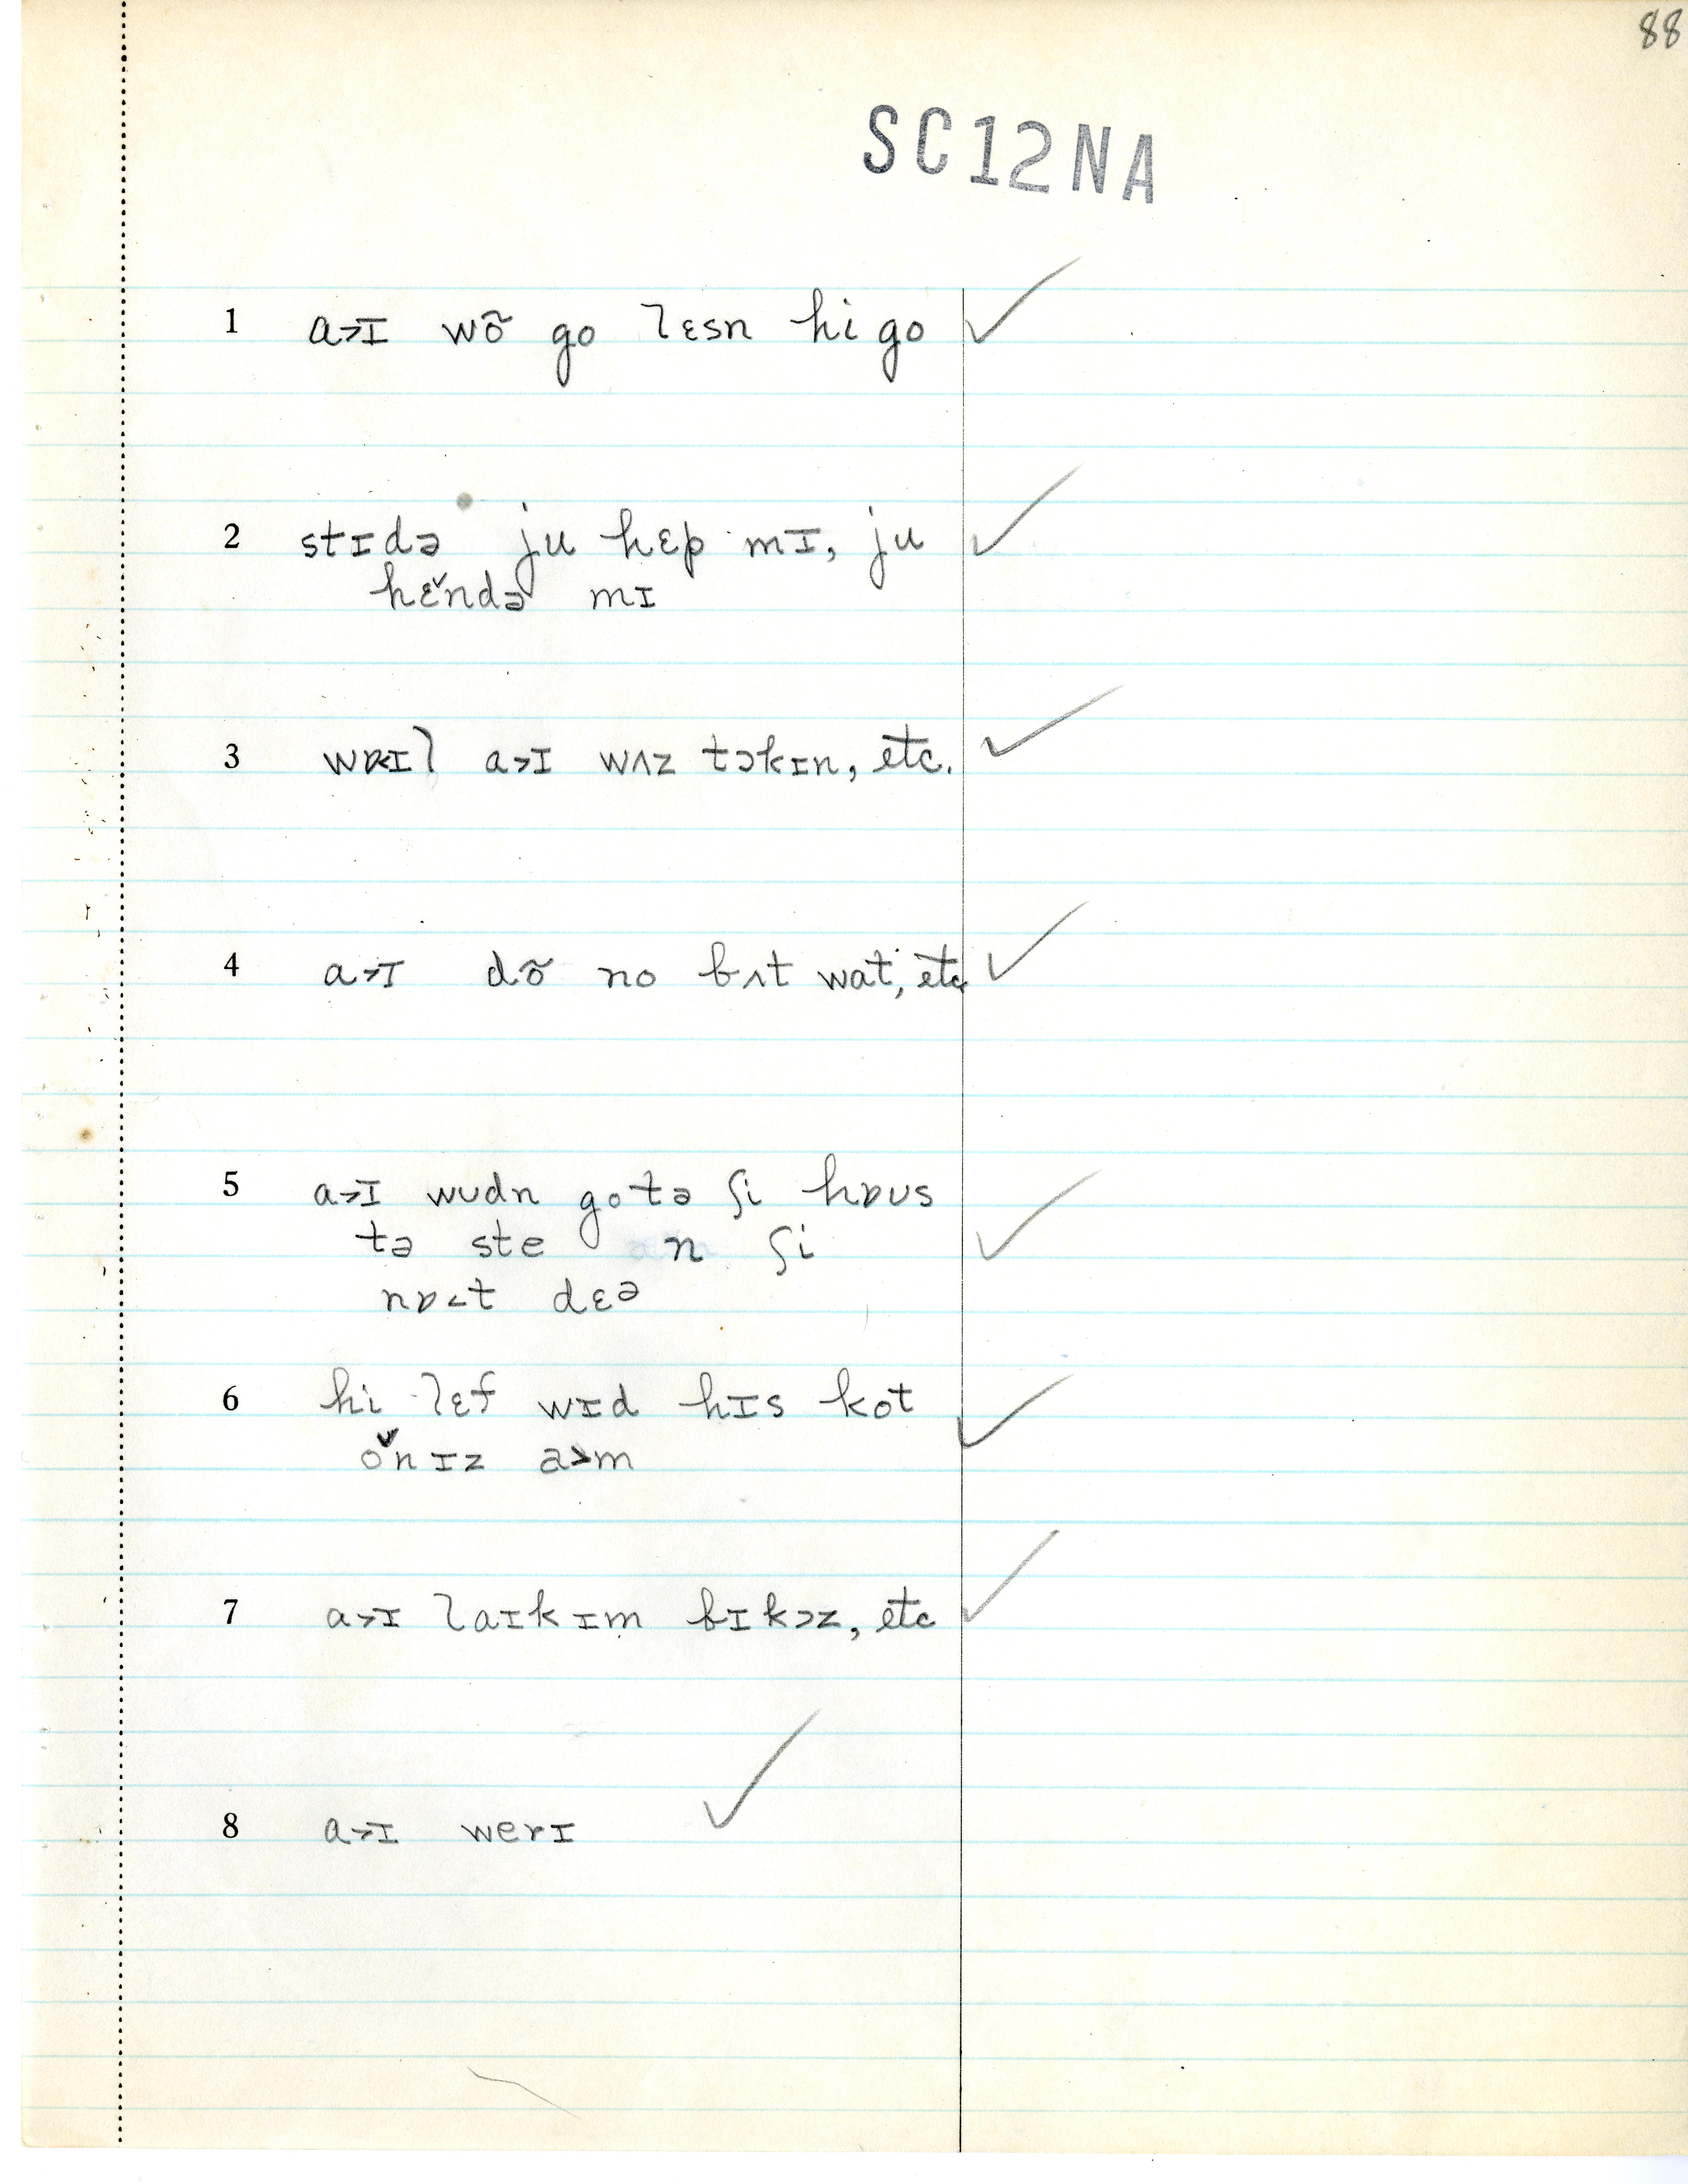 88
SC12NA
1 a˃ɪ wõ go lɛsn hi go
2 stɪdə ju hɛp mɪ, ju
hɛ̌ndə mɪ
3 wɒɪl a˃ɪ wʌz təkɪn, etc.
4 a˃ɪ dõ no bʌt wat, etc
5 a˃ɪ wʊdn go tə ʃi hɒʊs
tə ste n ʃi
nɒ˂t dɛə
6 hi lɛf wɪd hɪs kot
ǒnɪz a˃m
7 a˃ɪ laɪk ɪm bɪkɔz, etc
8 a˃ɪ werɪ